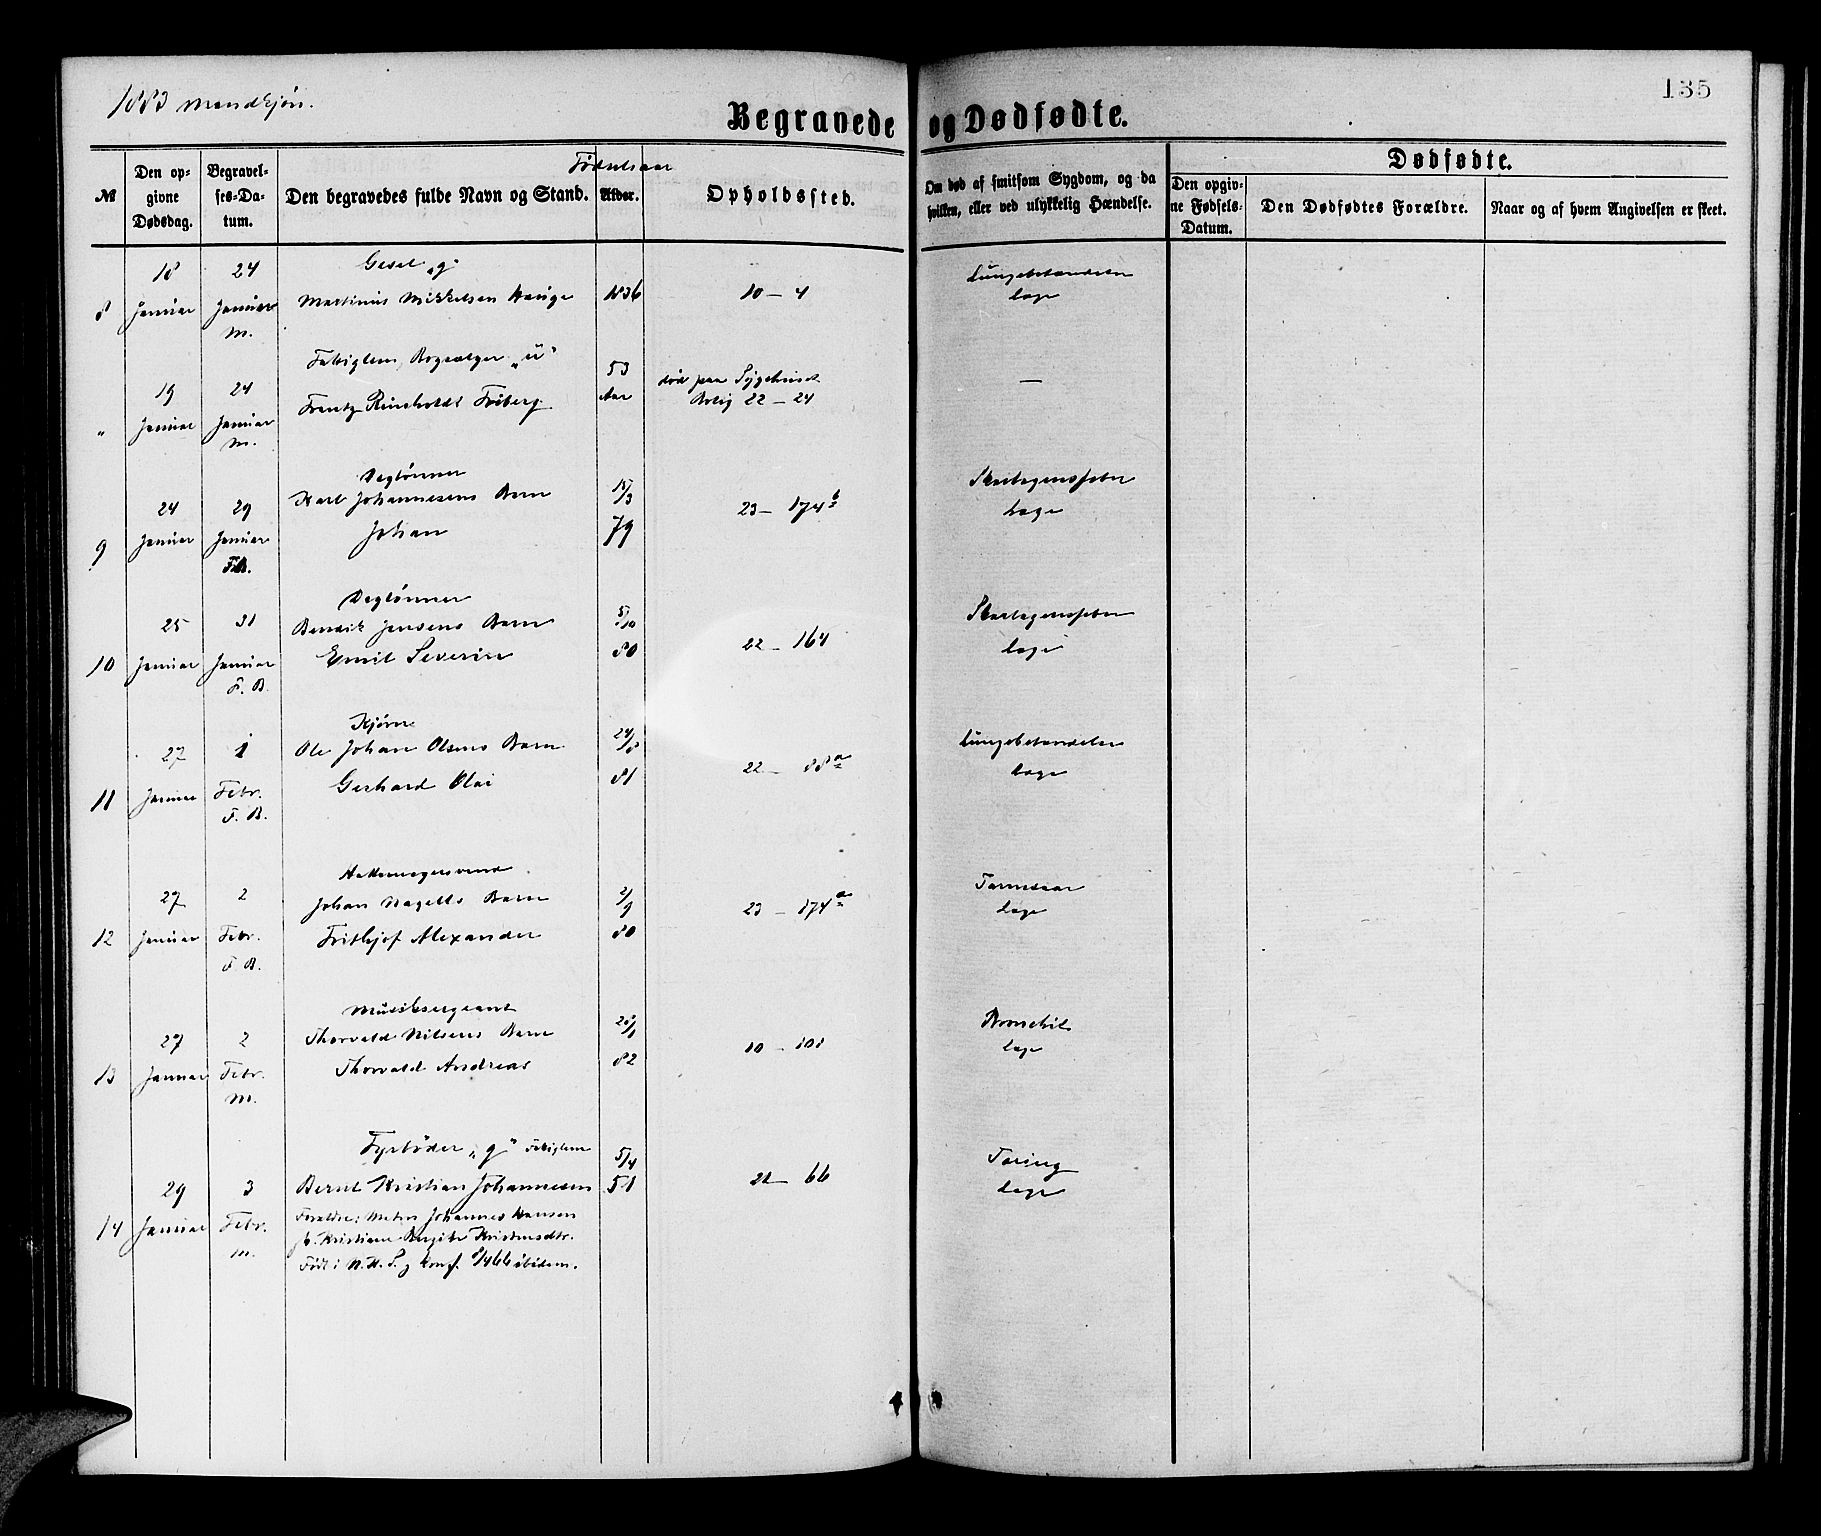 1883 Mandkjøn.
135
Begravede og Dødfødte.
№
Den opgivne Dødsdag.
Begravelses-Datum.
Den begravedes fulde Navn og Stand.
Fødselsaar
Alder.
Opholdssted.
Om død af smitsom Sygdom, og da hvilken, eller ved ulykkelig Hændelse.
Dødfødte.
Den opgivne Fødsels-Datum.
Den Dødfødtes Forældre.
Naar og af hvem Angivelsen er skeet.
8
18 Januar
24 Januar M.
"g"
Martinus Mikkelsen Hauge
1836
10 – 4
Lungebetændelse
Læge
"
19 Januar
24 Januar M.
Fattiglem, Bogsælger "u"
Frantz Reinholdt Friberg
53 Aar
død paa Sygehuset
Bolig 22 – 24
—
9
24 Januar
29 Januar F.B.
Daglønner
Karl Johannesens Barn
Johan
15/3 79
23 – 174 b
Skarlagensfeber
Læge
10
25 Januar
31 Januar F. B.
Daglønner
Bendik Jensens Barn
Emil Severin
5/10 80
22 – 164
Skarlagensfeber
Læge
11
27 Januar
1 Febr. F. B.
Ole Johan Olsens Barn
Gerhard Olai
24/8 81
22 – 88 a
Lungebetændelse
Læge
12
27 Januar
2 Febr. F. B.
Hattemagersvend
Johan Nagells Barn
Frithjof Alexander
2/9 80
23 – 174 a
Læge
13
27 Januar
2 Febr. M.
Musiksergeant
Thorvald Nilsens Barn
Thorvald Andreas
82
10 – 101
Bronchit
Læge
14
29 Januar
3 Febr. M.
Fyrbøder "g" Fattiglem
Bernt Kristian Johannesen
5/4 51
22 – 66
Tæring
Læge
Forældre: Matr. Johannes Hansen
Kristiane Birgitte Kristensdtr.
Født i N. H. S. g konf. 8/4 66 ibidem.